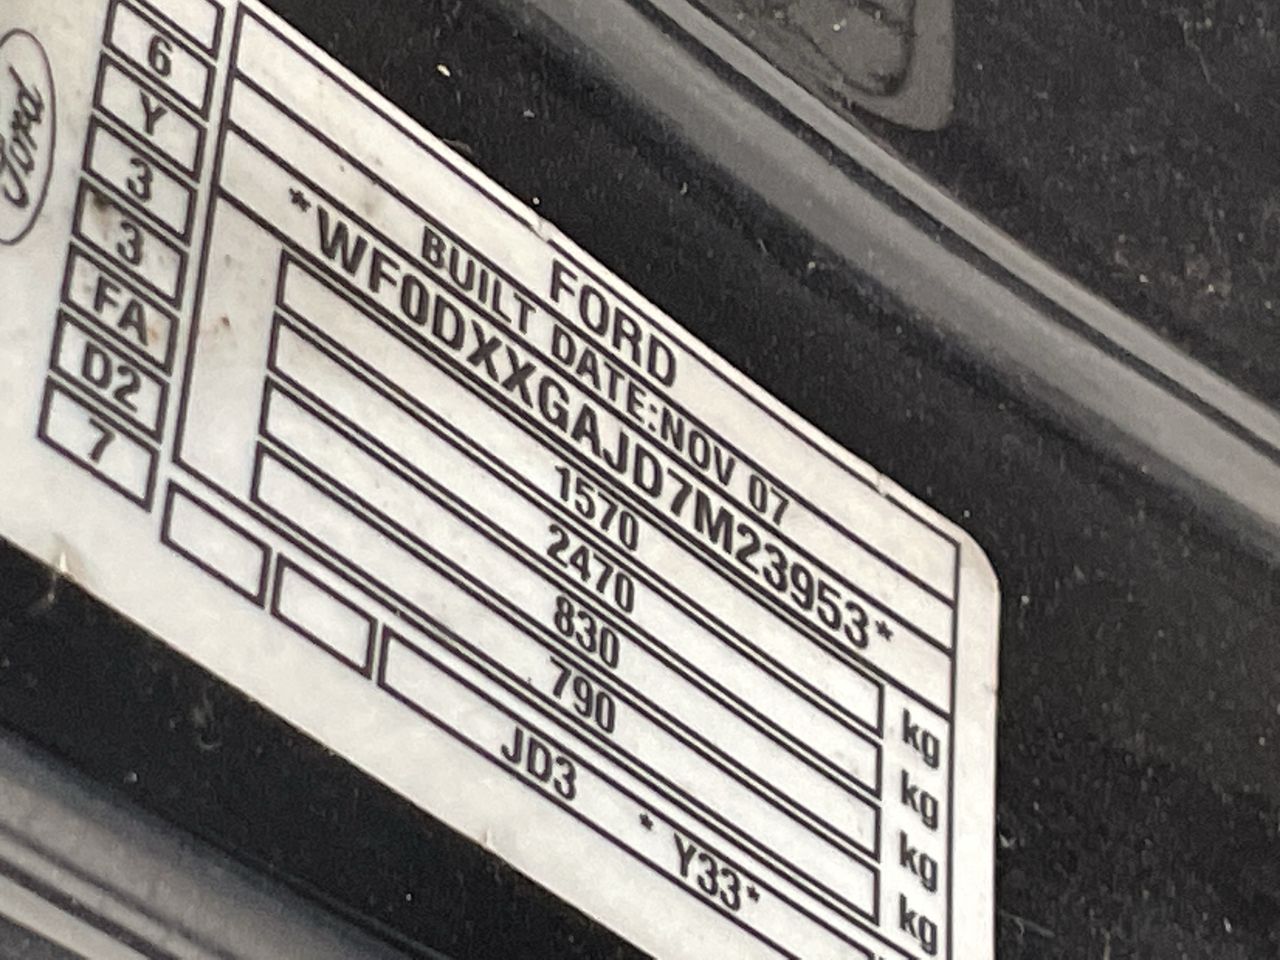 Ford
6
Y
3
3
FA
D2
7
FORD
BUILT DATE:NOV 07
*WF0DXXGAJD7M23953*
1570 kg
2470 kg
830 kg
790 kg
JD3 * Y33*